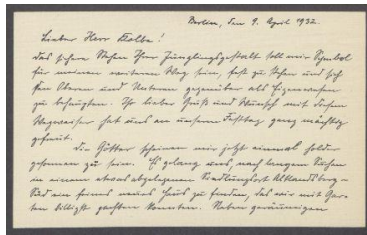 Berlin, den 9. April 1932.
Lieber Herr Kolbe!
Das sichere Stehen Ihrer Jünglingsgestalt soll mir Symbol
für meinen weiteren Weg sein, fest zu stehen und sich
den Oberen und Unteren gegenüber als Eigenwesen
zu behaupten. Ihr lieber Gruß und Wunsch mit diesem
Wegweiser hat uns an unserm Festtag ganz mächtig
gefreut.
Die Götter scheinen mir jetzt einmal holder
gesonnen zu sein. Es gelang uns, nach langem Suchen
in einem etwas abgelegenen Siedlungsort Altlandsberg-
Süd ein feines neues Haus zu finden, das wir mit Gar-
ten billigst pachten konnten. Neben geräumigen